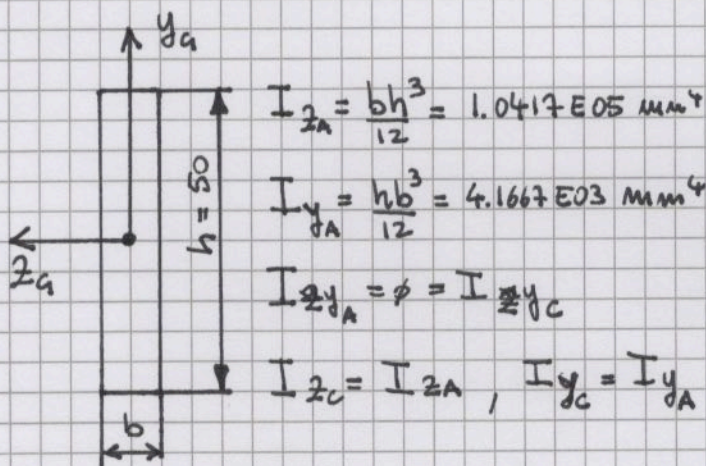 y_G
I_zA = bh³/12 = 1.0417 E05 mm⁴
h = 50
I_yA = hb³/12 = 4.1667 E03 mm⁴
z_G
I_zy_A = ϕ = I_zy_C
I_zC = I_zA , I_yC = I_yA
b